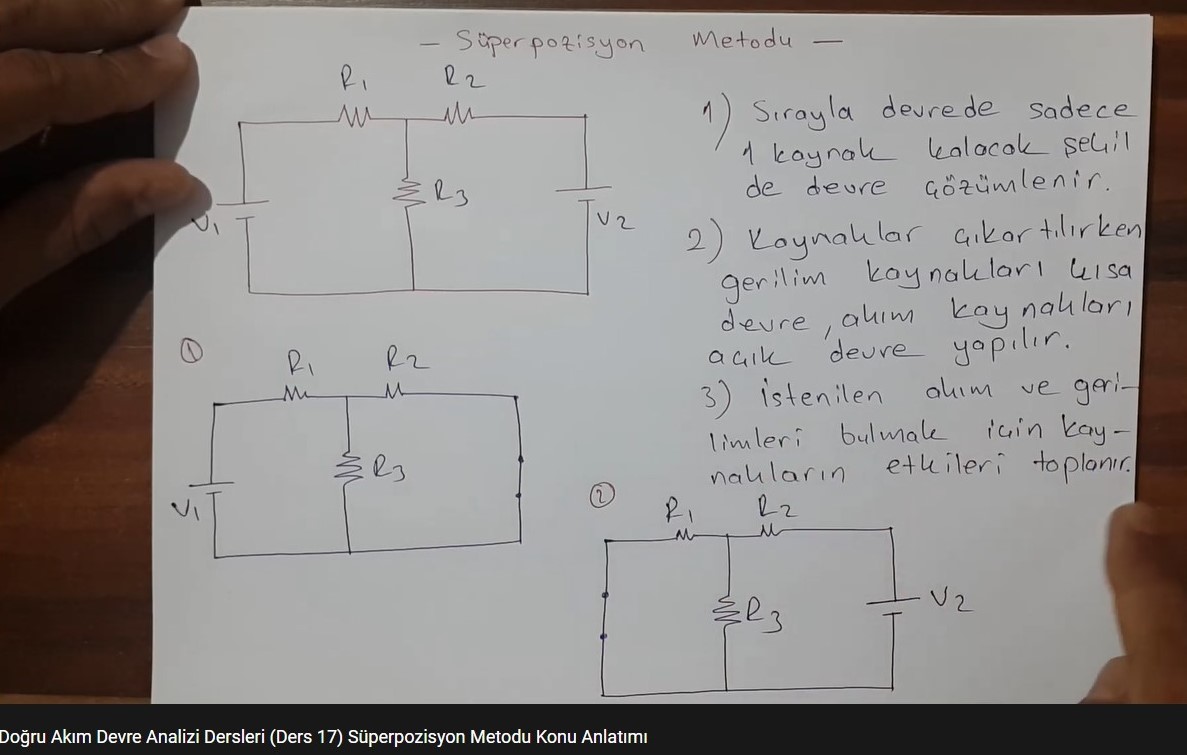 — Süperpozisyon Metodu —
R1 R2
R3
V1
V2
1) Sırayla devrede sadece
1 kaynak kalacak şekil
de devre çözümlenir.
2) Kaynaklar çıkartılırken
gerilim kaynakları kısa
devre, akım kaynakları
açık devre yapılır.
3) İstenilen akım ve geri-
limleri bulmak için kay-
nakların etkileri toplanır.
①
R1 R2
R3
V1
②
R1 R2
R3
V2
Doğru Akım Devre Analizi Dersleri (Ders 17) Süperpozisyon Metodu Konu Anlatımı